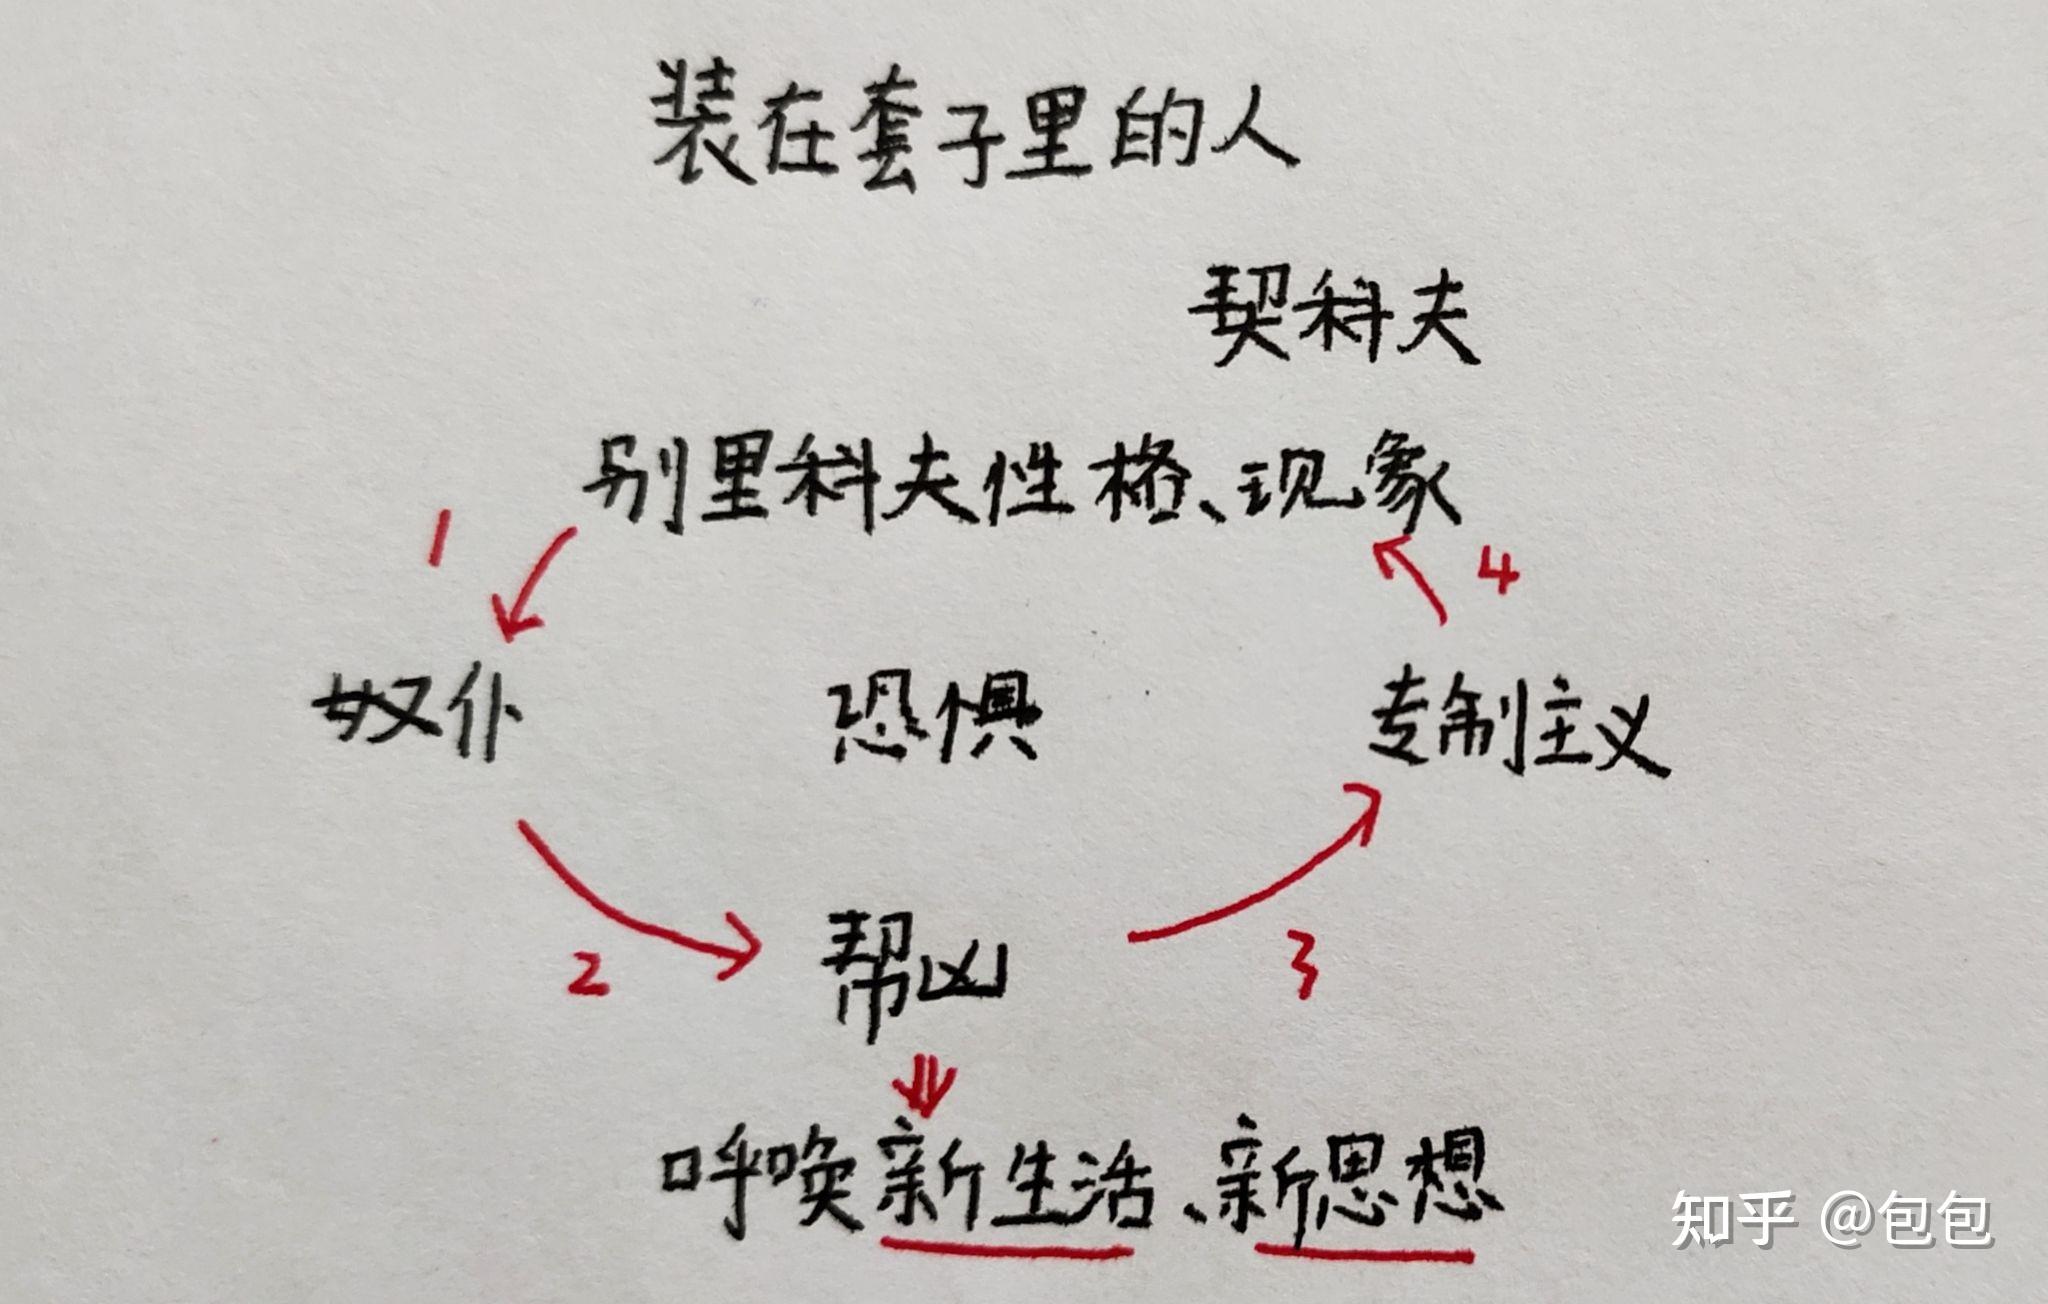 装在套子里的人
契科夫
别里科夫性格、现象
1
4
奴仆 恐惧 专制主义
2 帮凶 3
呼唤新生活、新思想
知乎 @包包